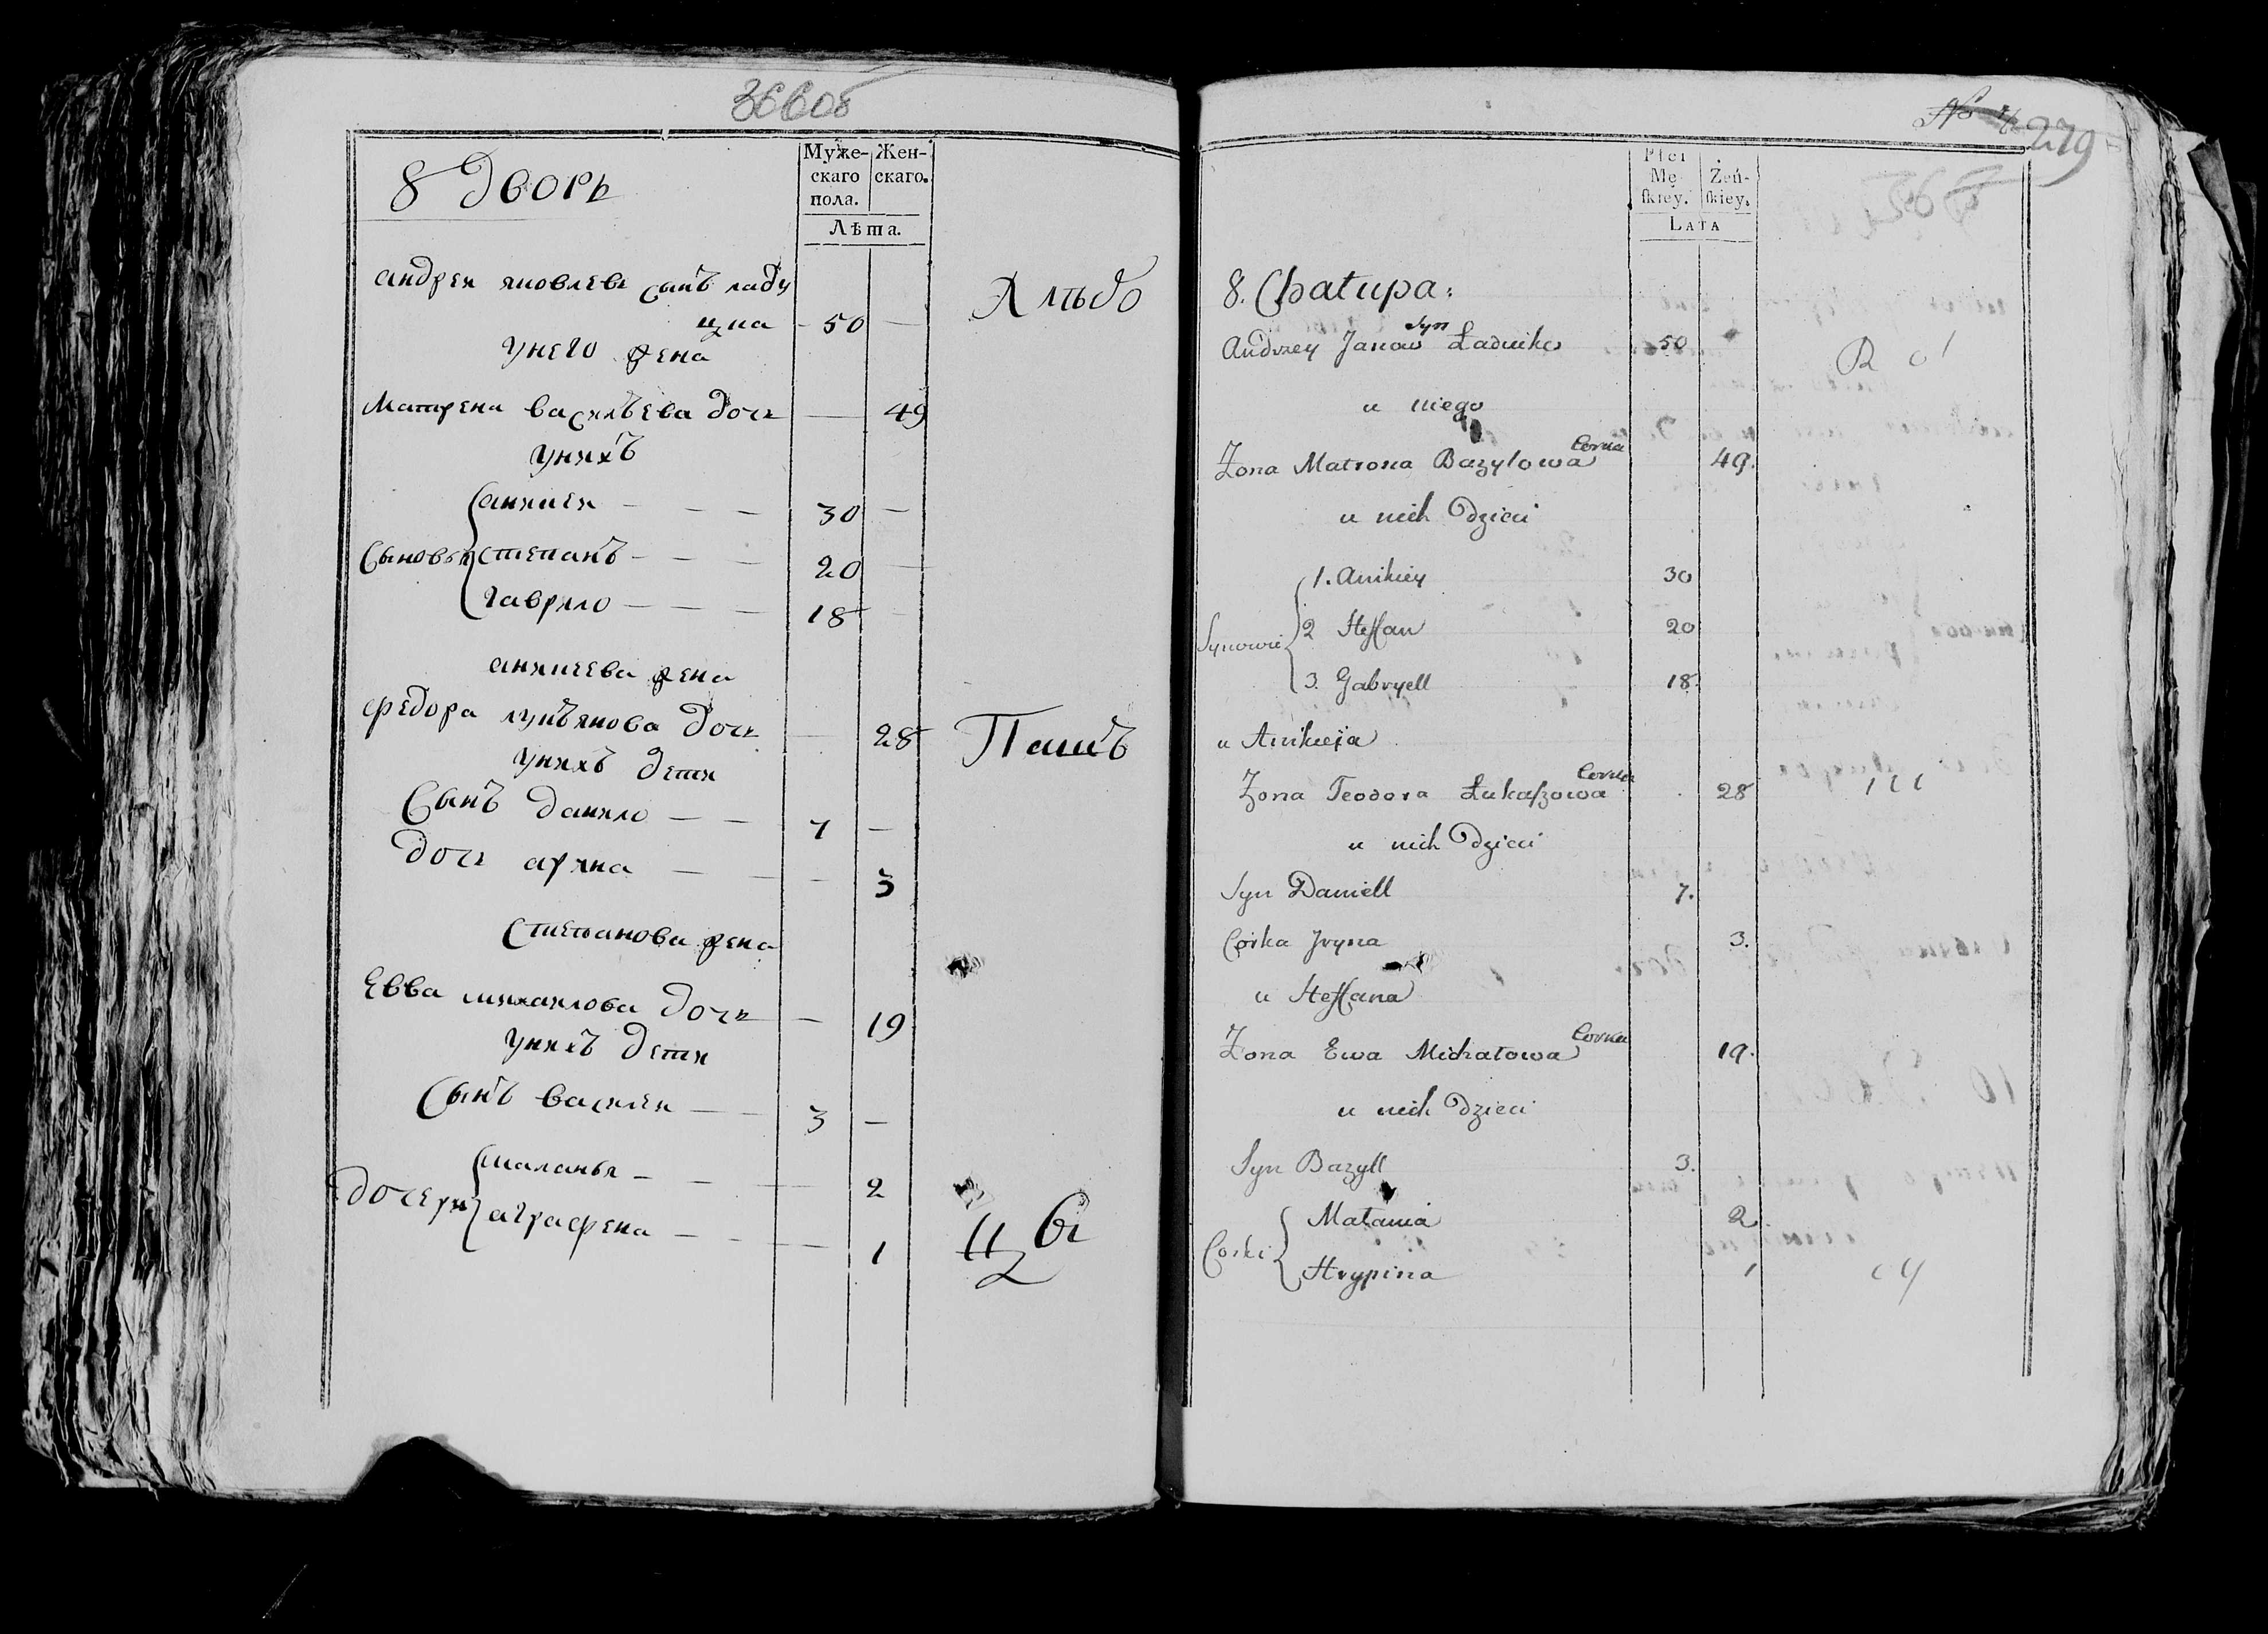 366об
8 Дворъ
Муже-скаго пола. Жен-скаго.
Лѣта.
андреи яковлевъ сынъ лади
цка - 50 —
Альбо
унего жена
Матрена василъева дочь — 49
унихъ
аникеи — — — 30 —
Сыновья степанъ — — — 20 —
гаврило — — — 18 —
аникиева жена
федора лукъянова дочь — 28
Пашъ
унихъ дети
Сынъ данило — — 7 —
дочь арина — — — 3
Степанова жена
Евва михаилова дочь — 19
унихъ дети
Сынъ василеи — — 3 —
маланья — — — 2
дочери аграфена — — — 1
цы
279
Płci Mę-skiey. Żeń-skiey.
LATA
8. Chałupa:
Andrzey Janow Syn Ładniko 50
u niego
Żona Matrona Bazylowa Corka 49.
u nich Dzieci
1. Anikiey 30
Synowie 2 Steffan 20
3. Gabryell 18.
u Anikieja
Żona Teodora Łukaszowa Corka 28
u nich Dzieci
Syn Daniell 7.
Corka Jryna 3.
u Steffana
Żona Ewa Michałowa Corka 19.
u nich Dzieci
Syn Bazyll 3.
Małania 2
Corki Hrypina 1